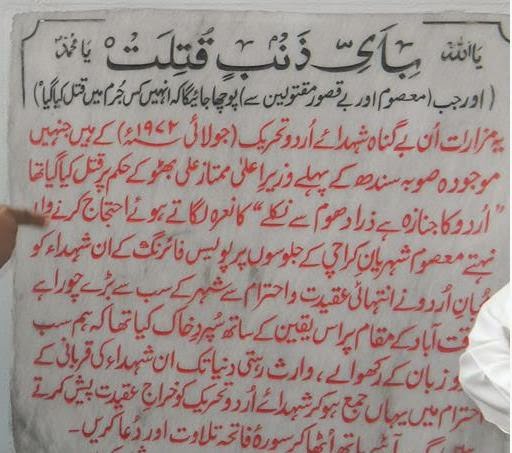 یا اللہ بِاَیِّ ذَنْبٍ قُتِلَتْ یا محمدؐ
(اور جب (معصوم اور بے قصور مقتولین سے) پوچھا جائیگا کہ انہیں کس جُرم میں قتل کیا گیا)
یہ مزارات اُن بے گناہ شہدائے اُردو تحریک (جولائی ۱۹۷۲ء) کے ہیں جنہیں
موجودہ صوبہ سندھ کے پہلے وزیرِ اعلیٰ ممتاز علی بھٹو کے حکم پر قتل کیا گیا تھا
"اُردو کا جنازہ ہے ذرا دھوم سے نکلے" کا نعرہ لگاتے ہوئے احتجاج کرنے
نہتے معصوم شہریانِ کراچی کے جلوسوں پر پولیس فائرنگ کے ان شہداء کو
اُردو نے انتہائی عقیدت و احترام سے شہر کے سب سے بڑے چوراہے
آباد کے مقام پر اس یقین کے ساتھ سُپردِ خاک کیا تھا کہ ہم سب
زبان کے رکھوالے، وارث رہتی دنیا تک ان شہداء کی قربانی کے
احترام میں یہاں جمع ہو کر شہدائے اُردو تحریک کو خراجِ عقیدت پیش کرتے
ہاتھ اُٹھا کر سورۂ فاتحہ تلاوت اور دُعا کریں۔